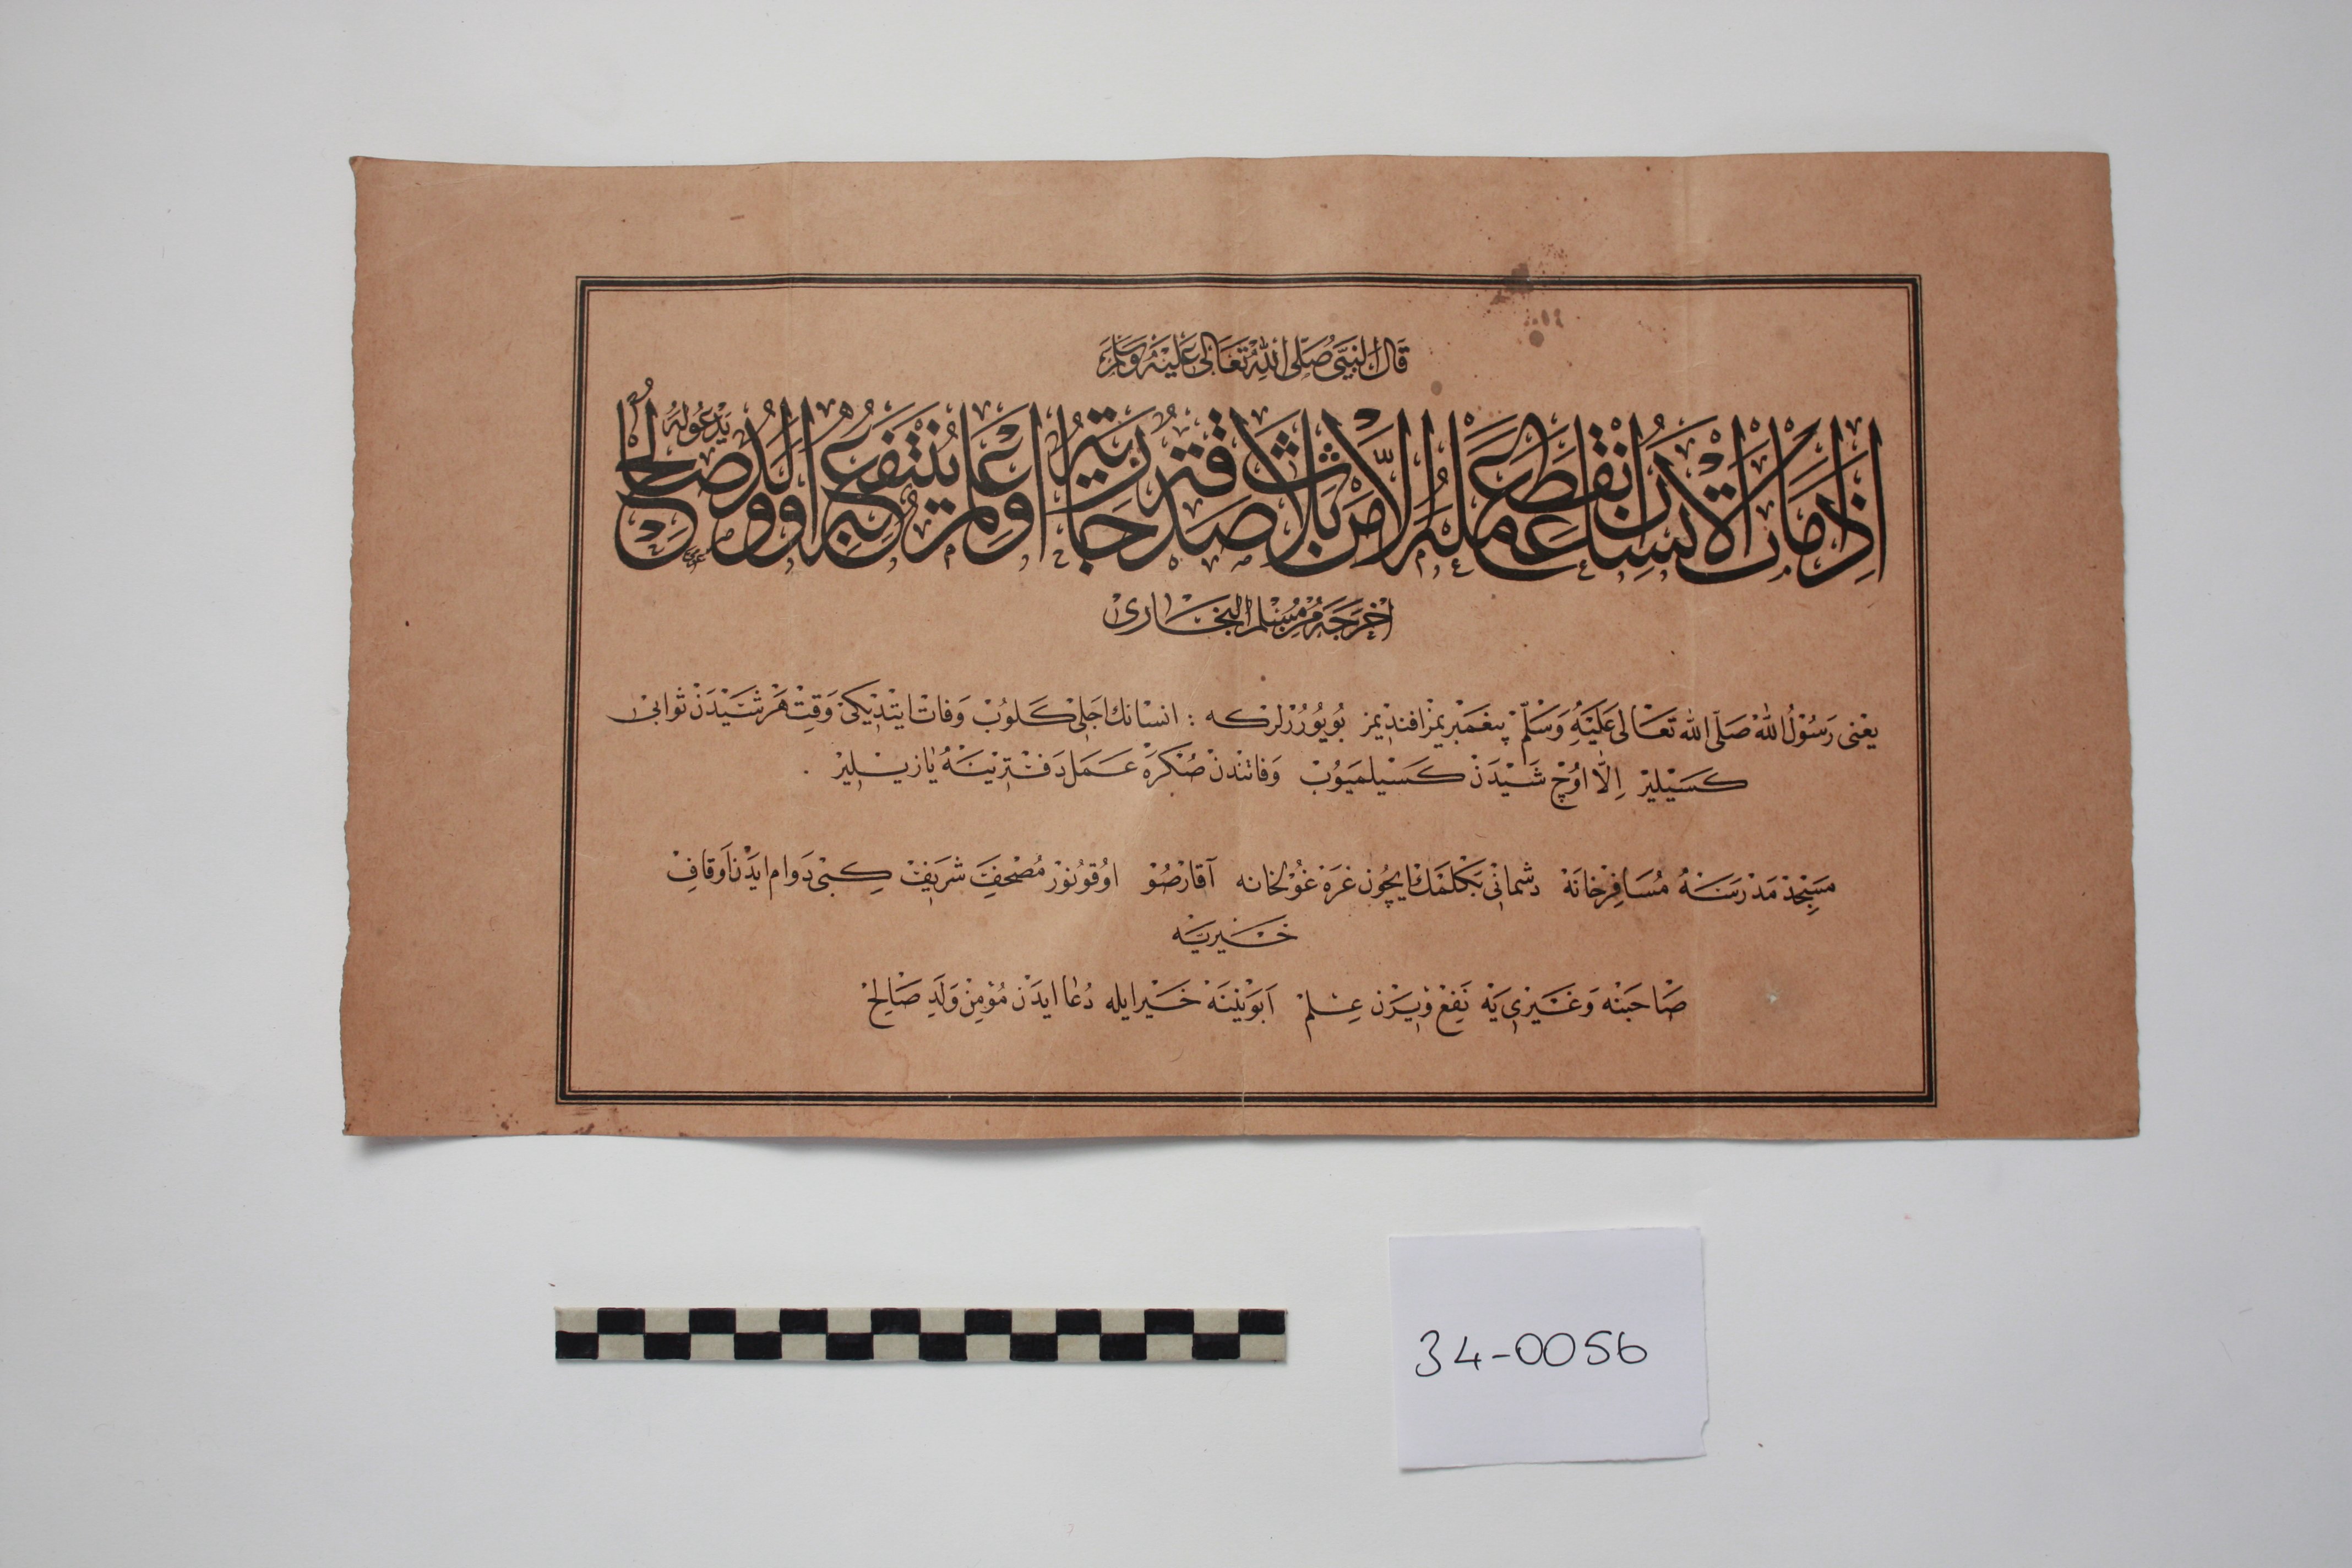 قَالَ النَّبِيُّ صَلَّى اللّٰهُ تَعَالٰى عَلَيْهِ وَسَلَّمَ
اِذَا مَاتَ الْاِنْسَانُ انْقَطَعَ عَمَلُهُ اِلَّا مِنْ ثَلَاثٍ صَدَقَةٍ جَارِيَةٍ اَوْ عِلْمٍ يُنْتَفَعُ بِهِ اَوْ وَلَدٍ صَالِحٍ يَدْعُو لَهُ
اَخْرَجَهُ مُسْلِم الْبُخَارِىْ
يَعْنِى رَسُوْلُ اللّٰهْ صَلَّى اللّٰه تَعَالٰى عَلَيْهِ وَسَلَّمْ پيغَمْبَريمِزْ افنديمِز بُويُورُرْلَرْكه : انسانك اَجَلِى كَلُوبْ وَفَاتْ ايتْدِيكىْ وَقِتْ هَرْ شَيْدَنْ ثَوابىْ
كَسِيْلِيرْ اِلَّا اوُچْ شَيْدَنْ كَسِيلمَيُوبْ وَفَاتنْدَنْ صُكْرَهْ عَمَلْ دَفْتَرِيْنَهْ يَازِيلِيرْ .
مَسْجِدْ مَدْرَسَهْ مُسَافِرْخَانَهْ دُشْمَانِى بَكْلَمَكْ ايچُون غَرَهْغُوْلخانه آقَارْصُوْ اوُقُونُورْ مُصْحَفِ شَرِيفْ كِبِىْ دَوَام ايدَنْ اَوقَافِ
خَيْرِيَه
صَاحِبنْه وَغَيْرِى يَهْ نَفِعْ وِيرَنْ عِلمْ اَبَوَيْنِنَهْ خَيْرايله دُعَا ايدَنْ مُؤْمِنْ وَلَدِ صَالِحْ
34-0056